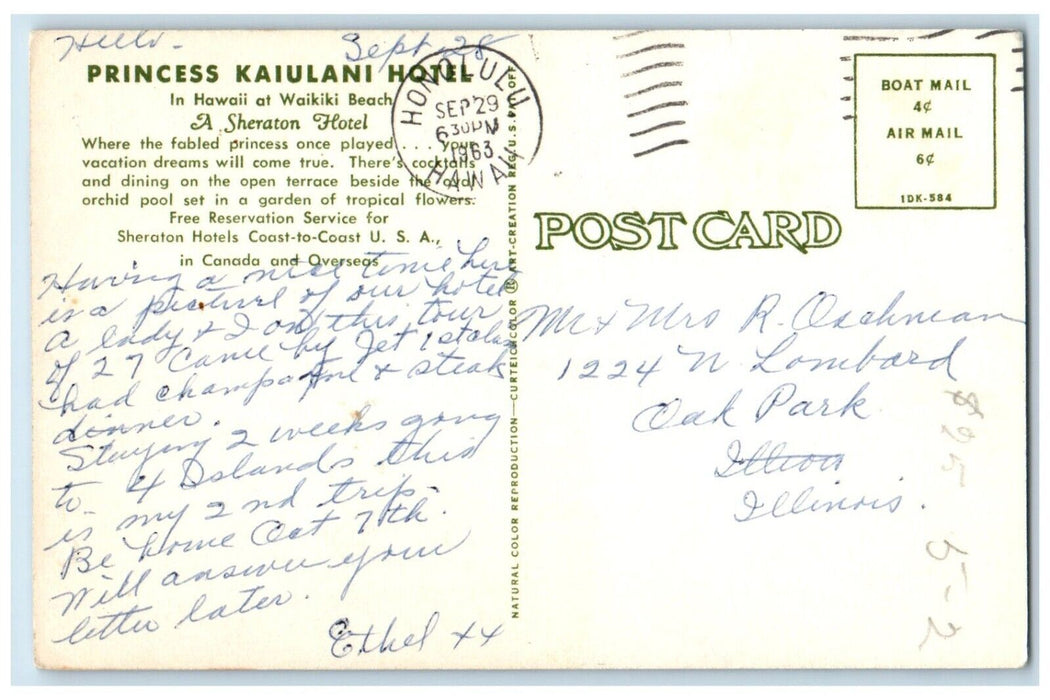 Hello - Sept. 28
PRINCESS KAIULANI HOTEL
In Hawaii at Waikiki Beach
A Sheraton Hotel
Where the fabled princess once played . . . your
vacation dreams will come true. There's cocktails
and dining on the open terrace beside the oval
orchid pool set in a garden of tropical flowers.
Free Reservation Service for
Sheraton Hotels Coast-to-Coast U. S. A.,
in Canada and Overseas
Having a nice time here
is a picture of our hotel
A lady & I on this tour
of 27 Came by Jet 1st class
had champagne & steak
dinner.
Staying 2 weeks going
to 4 Islands this
is my 2nd trip-
Be home Oct 7th.
Will answer your
letter later.
Ethel xx
HONOLULU
SEP 29
630PM
1963
HAWAII
NATURAL COLOR REPRODUCTION—CURTEICHCOLOR ® ART-CREATION REG. U.S. PAT. OFF.
POST CARD
BOAT MAIL
4¢
AIR MAIL
6¢
1DK-584
Mr & Mrs R. Oschman
1224 N. Lombard
Oak Park
Illinois.
5-2